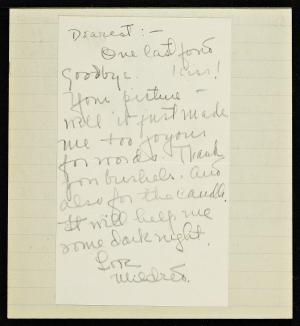 Dearest :-
One last fond
goodbye. Kiss!
Your picture -
well it just made
me too joyous
for words. Thank
you bushels. And
also for the candle.
It will help me
some dark night.
Love
Mildred.